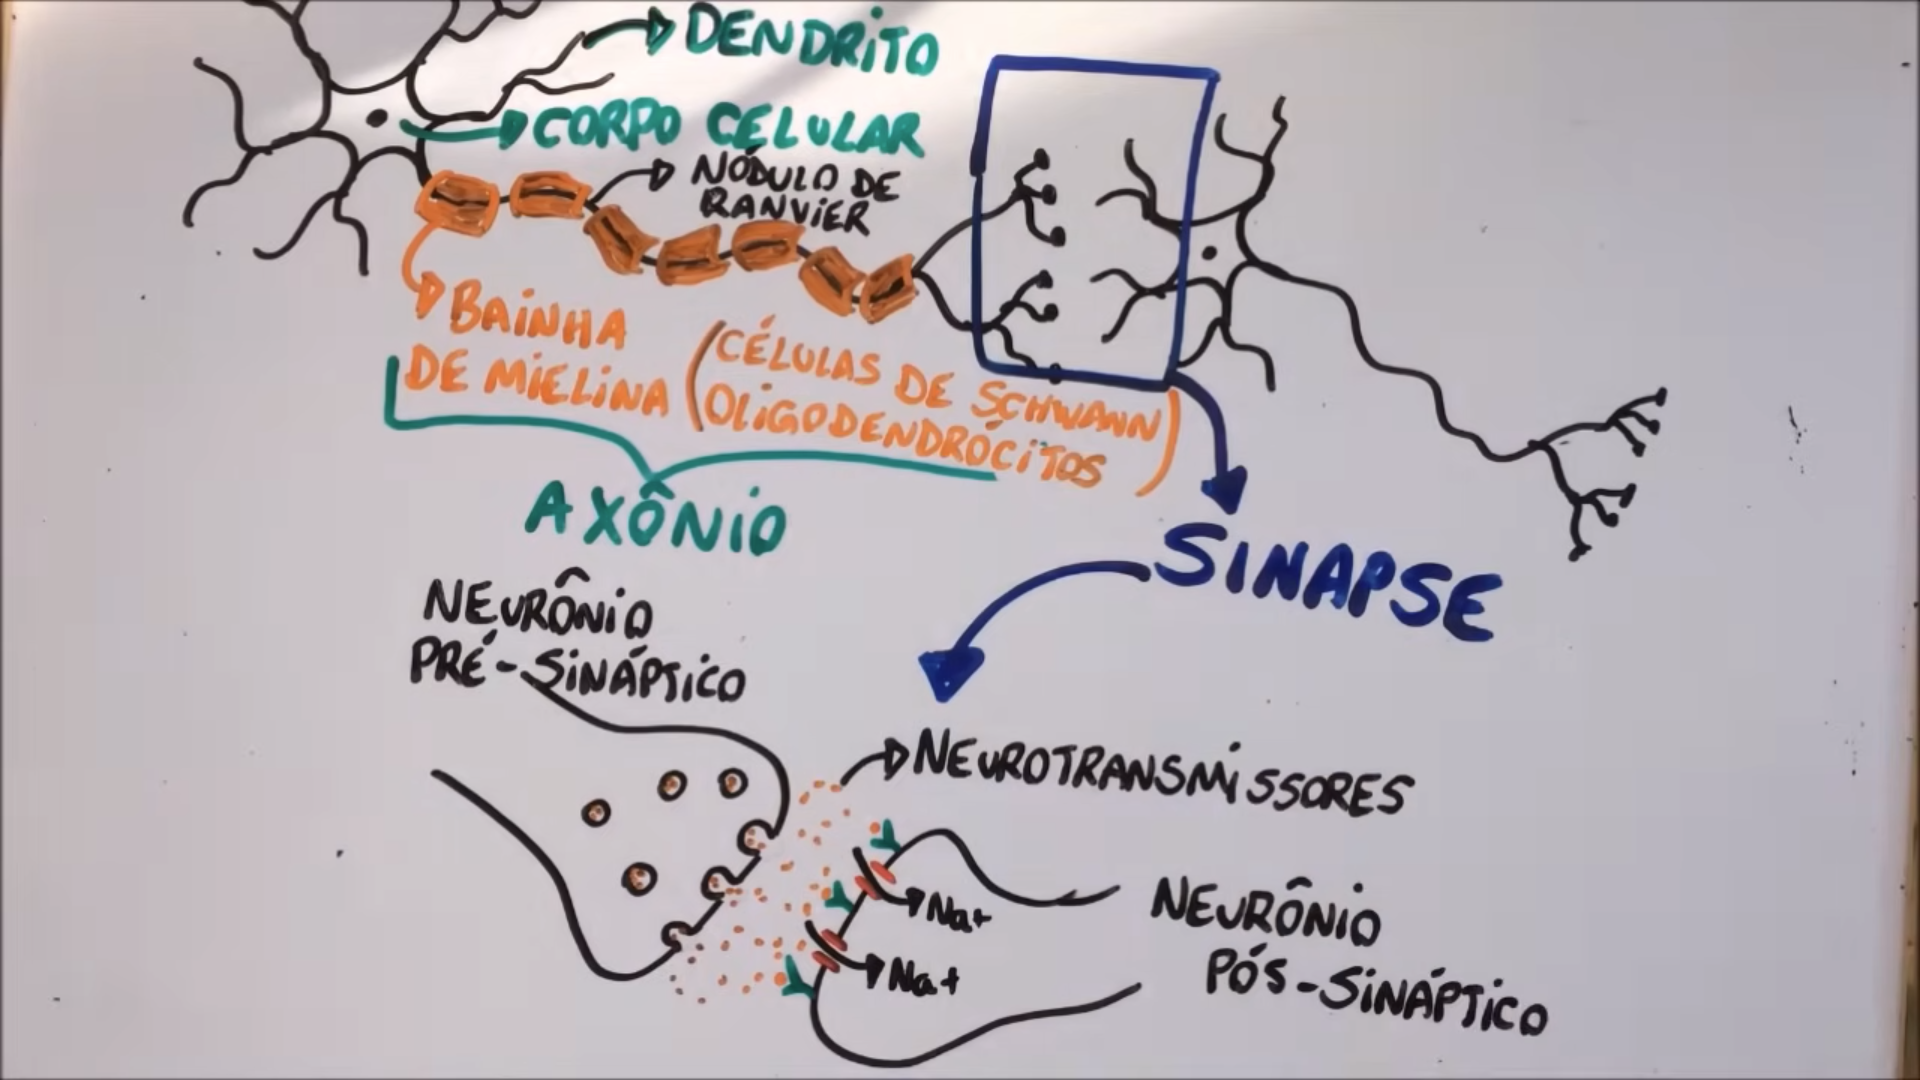 DENDRITO
CORPO CELULAR
NÓDULO DE
RANVIER
BAINHA
DE MIELINA
(CÉLULAS DE SCHWANN
OLIGODENDRÓCITOS)
AXÔNIO
SINAPSE
NEURÔNIO
PRÉ-SINÁPTICO
NEUROTRANSMISSORES
Na+
Na+
NEURÔNIO
PÓS-SINÁPTICO